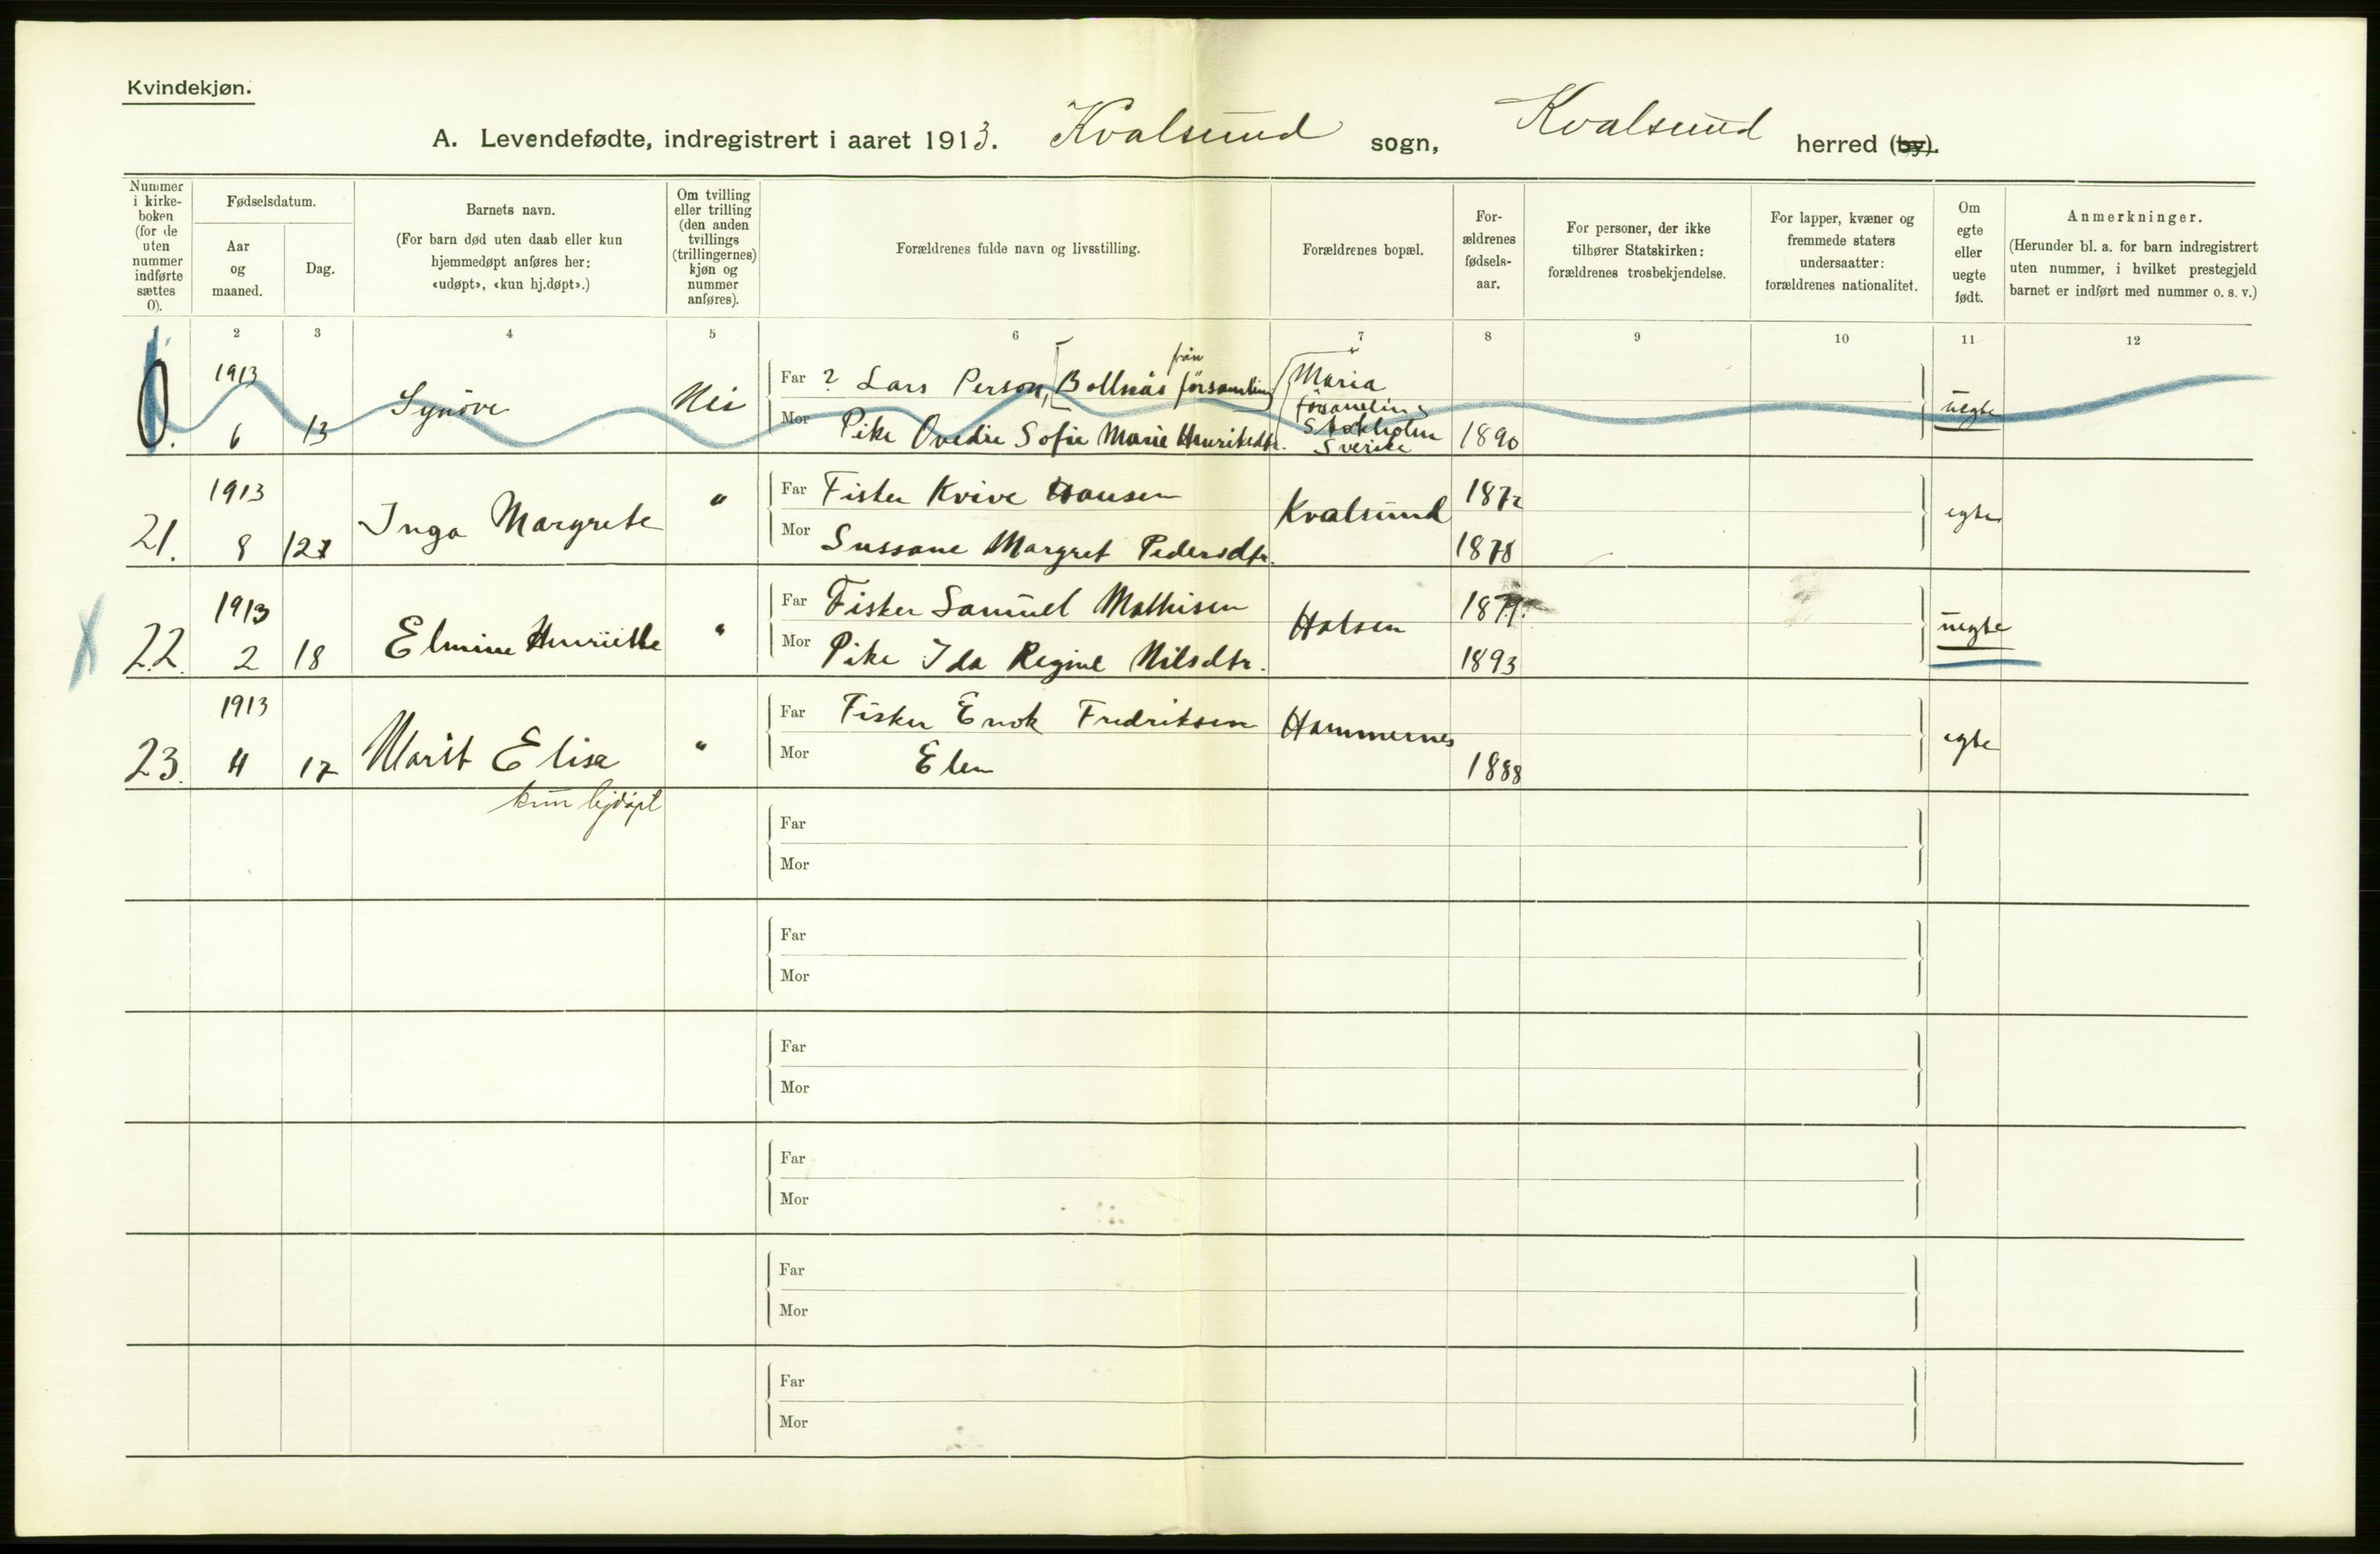 Kvindekjøn.
A. Levendefødte, indregistrert i aaret 1913. Kvalsund sogn, Kvalsund herred (by).
Nummer i kirkeboken (for de uten nummer indførte sættes 0).
Fødselsdatum.
Aar og maaned.
Dag.
Barnets navn.
(For barn død uten daab eller kun hjemmedøpt anføres her: «udøpt», «kun hj.døpt».)
Om tvilling eller trilling (den anden tvillings (trillingernes) kjøn og nummer anføres).
Forældrenes fulde navn og livsstilling.
Forældrenes bopæl.
Forældrenes fødselsaar.
For personer, der ikke tilhører Statskirken: forældrenes trosbekjendelse.
For lapper, kvæner og fremmede staters undersaatter: forældrenes nationalitet.
Om egte eller uegte født.
Anmerkninger.
(Herunder bl. a. for barn indregistrert uten nummer, i hvilket prestegjeld barnet er indført med nummer o. s. v.)
2 3 4 5 6 7 8 9 10 11 12
0. 1913 6 13 Synöve Nei
Far ? Lars Person, [Bollnäs från församling]
Mor Pike Ovedie Sofie Marie Henriksdtr. 1890
Maria
församling
Stokholm
Sverike
uegte
21. 1913 8 127 Inga Margrete "
Far Fisker Kvive Hansen Kvalsund 1872
Mor Sussane Margret Pedersdtr. 1878
egte
22. 1913 2 18 Elmine Henriette "
Far Fisker Samuel Mathisen 1879.
Mor Pike Ida Regine Nilsdtr. 1893
uegte
23. 1913 4 17 Marit Elisa "
Far Fisker Enok Fredriksen Hammernes
Mor Elen 1888
egte
kun hjdøpt
Far
Mor
Far
Mor
Far
Mor
Far
Mor
Far
Mor
Far
Mor